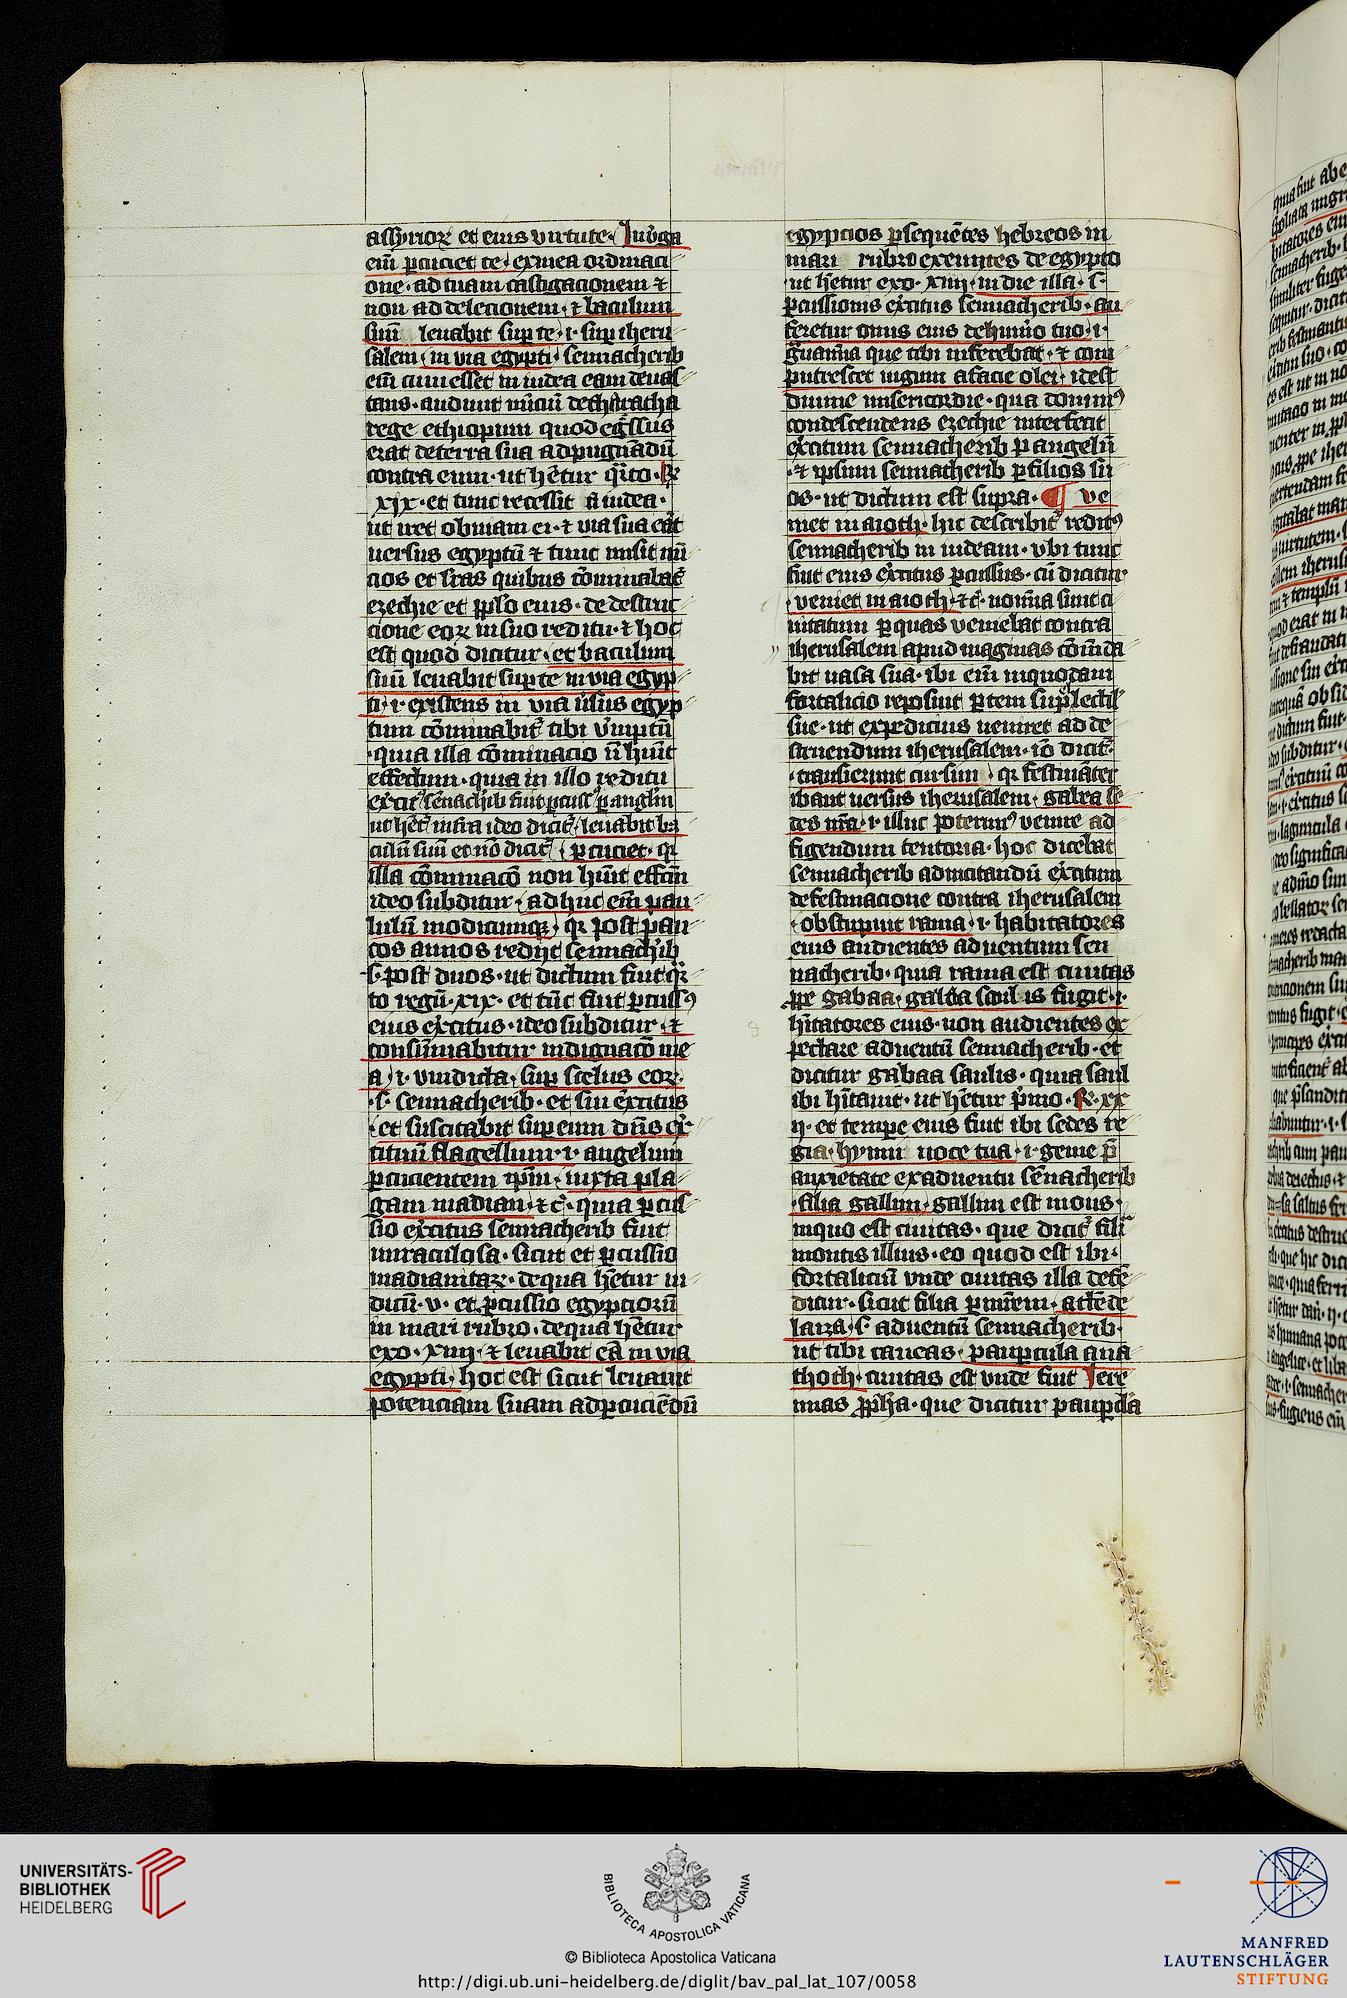 assyrioꝝ et eius virtute· In v̾ga
em̅ ꝑcuciet te· ex mea ordinaci
one· ad tuam castigacionem ⁊
non ad delecionem· ⁊ baculum
suu̅ leuabit suꝑ te ·i· suꝑ iheru
salem· in via egypti· sennacherib
em̅ cum esset in iudea eam deuas
tans· audiuit nu̅ciu̅ de tharacha
rege ethiopum quod eg̾ssus
erat de terra sua ad pugna̅du̅
contra eum· ut he̅tur q̾rto· Rͬ
xix· et tunc recessit a iudea·
ut iret obuiam ei· ⁊ via sua erat
uersus egyptu̅ ⁊ tunc misit nu̅
cios et lr̅as quibus co̅minabat᷑
ezechie et pp̅lo eius· de destruc
cione eoꝝ in suo reditu· ⁊ hoc
est quod dicitur· et baculum
suu̅ leuabit suꝑ te in via egyp
ti· ·i· existens in via u̾sus egyp
tum co̅minabit᷑ tibi v̾mptu̅
·quia illa co̅minacio n̅ h̅uit
effectum· quia in illo reditu
ex̾cit᷒ se̅nach̾ib fuit ꝑcuss᷒ ꝑ angl̅m
ut he̅t᷑ infra ideo dicit᷑· leuabit ba
culu̅ suu̅ et no̅ dicit᷑· ꝑcuciet· qꝛ
illa co̅minaco̅ non h̅uit effc̅m
ideo subditur· adhuc em̅ pau
lulu̅ modicumqꝫ· qꝛ post pau
cos annos redijt sennach̾ib
·s· post duos· ut dictum fuit q̾r
to regu̅· xix· et tu̅c fuit ꝑcuss᷒
eius ex̾citus· ideo subditur· ⁊
consu̅mabitur indignaco̅ me
a· ·i· vindicta· suꝑ scelus eoꝝ·
·s· sennacherib· et sui ex̾citus
·et suscitabit suꝑ eum dn̅s ex̾r
cituu̅ flagellum· ·i· angelum
ꝑcucientem ip̅m· iuxta pla
gam madian· ⁊c̾· quia ꝑcus
sio ex̾citus sennacherib fuit
miraculosa· sicut et ꝑcussio
madianitaꝝ· de qua he̅tur iu
dicu̅· v· et ꝑcussio egypcioru̅
in mari rubro· de qua he̅tur
exo· xiiij· ⁊ leuabit ea̅ in via
egypti· hoc est sicut leuauit
potenciam suam ad ꝑcucie̅du̅
egypcios ꝑseque̅tes hebreos in
mari rubro exeuntes de egypto
·ut he̅tur exo· xiiij· in die illa· ·s·
ꝑcussionis ex̾citus sennacherib· au
feretur onus eius de hum̾o tuo· ·i·
g̾uamina que tibi inferebat· ⁊ com
putrescet iugum a facie olei· idest
diuine misericordie· qua domin᷒
condescendens ezechie interfecit
ex̾citum sennacherib ꝑ angelu̅
·⁊ ipsum sennacherib ꝑ filios su
os· ut dictum est supra· ¶ ve
niet in aioth· hic describit᷑ redit᷒
sennacherib in iudeam· vbi tunc
fuit eius ex̾citus ꝑcussus· cu̅ dicitur
·veniet in aioth· ⁊c̾· nom̅a sunt ci
uitatum ꝑ quas veniebat contra
iherusalem apud magmas co̅me̅da
bit uasa sua· ibi em̅ in quodam
fortalicio reposuit ꝑtem suꝑlectil᷑
sue· ut expedicius ueniret ad de
struendum iherusalem· io̅ dicit᷑·
·transierunt cursim· qꝛ festina̅ter
ibant uersus iherusalem· gabea se
des nr̅a· ·i· illuc poterim᷒ venire ad
figendum tentoria· hoc dicebat
sennacherib ad incitandu̅ ex̾citum
de festinacione contra iherusalem
·obstupuit rama· ·i· habitatores
eius audientes aduentum sen
nacherib· quia rama est ciuitas
ꝓpe gabaa· gab̾a saulis fugit· ·i·
h̅itatores eius· non audientes ex
pectare aduentu̅ sennacherib· et
dicitur gabaa saulis· quia saul
ibi h̅itauit· ut he̅tur p̾mo· Rͬ· xx
ij· et tempe eius fuit ibi sedes re
gia· hynni uoce tua· ·i· geme p̅
anxietate ex aduentu se̅nacherib
·filia gallim· gallim est mons·
in quo est ciuitas· que dicit᷑ filia
montis illius· eo quod est ibi·
fortaliciu̅ vnde ciuitas illa defe̅
ditur· sicut filia ꝑ matrem· atte̅de
laiza· ·s· aduentu̅ sennacherib·
ut tibi caueas· pauꝑcula ana
thoth· ciuitas est vnde fuit Iere
mias ꝓph̅a· que dicitur pauꝑcl̅a
UNIVERSITÄTS-
BIBLIOTHEK
HEIDELBERG
BIBLIOTECA APOSTOLICA VATICANA
© Biblioteca Apostolica Vaticana
http://digi.ub.uni-heidelberg.de/diglit/bav_pal_lat_107/0058
MANFRED
LAUTENSCHLÄGER
STIFTUNG